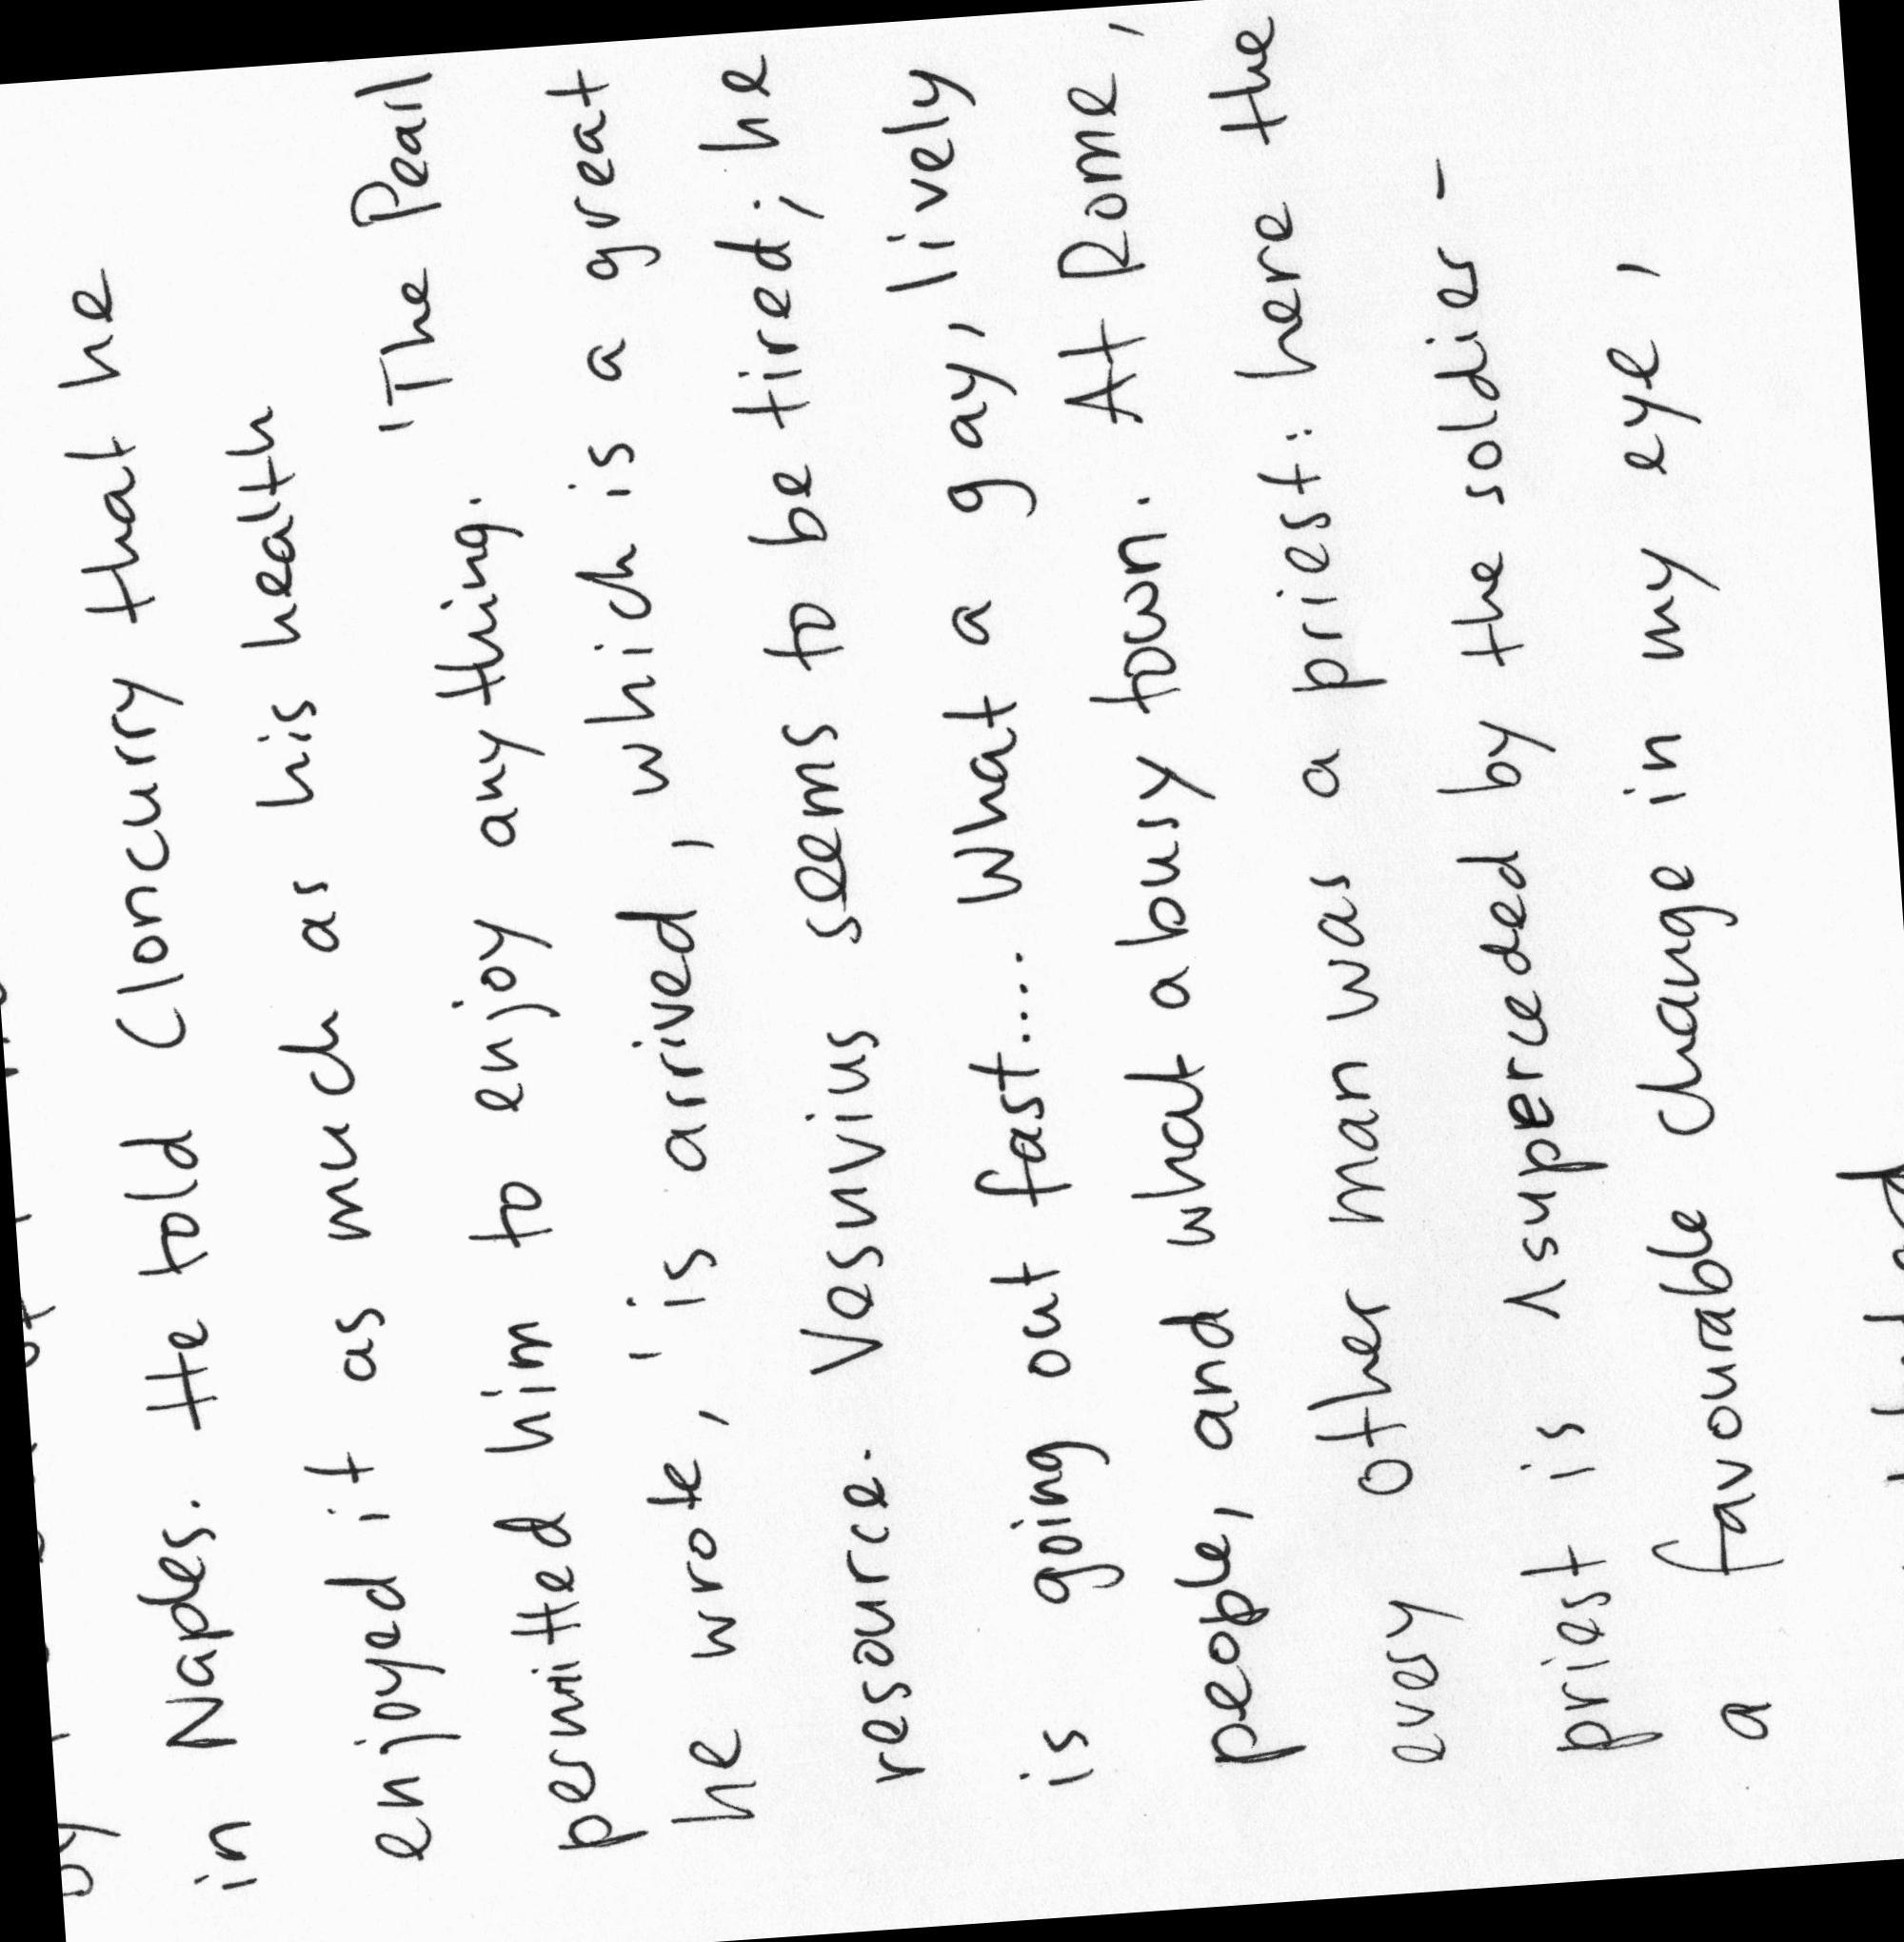 in Naples. He told Cloncurry that he
enjoyed it as much as his health
permitted him to enjoy any thing. 'The Pearl
he wrote, 'is arrived, which is a great
resource. Vesuvius seems to be tired; he
is going out fast.... What a gay, lively
people, and what a busy town. At Rome,
every other man was a priest: here the
priest is ^superceded by the soldier -
a favourable change in my eye,